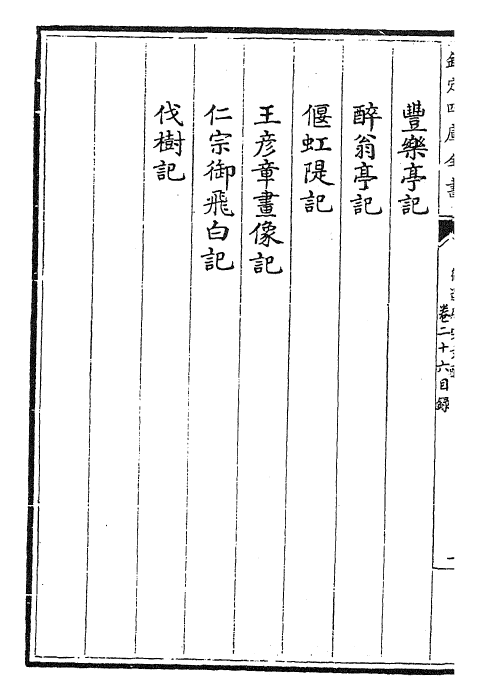 欽定四庫全書
卷二十六目錄
豐樂亭記
醉翁亭記
偃虹隄記
王彥章畫像記
仁宗御飛白記
伐樹記